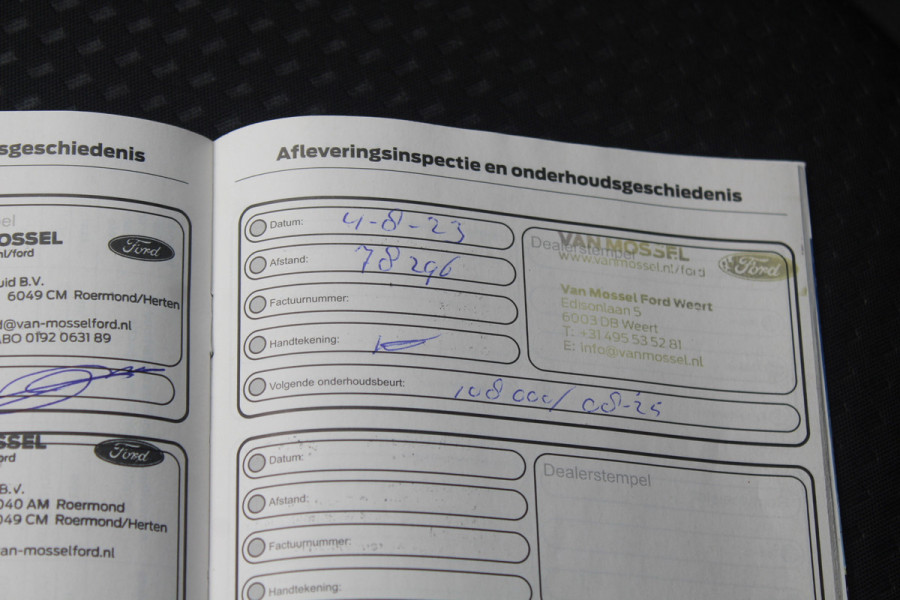 sgeschiedenis
pel
OSSEL
nl/ford
Ford
uid B.V.
6049 CM Roermond/Herten
d@van-mosselford.nl
ABO 0192 0631 89
SSEL
ord
Ford
B.V.
040 AM Roermond
049 CM Roermond/Herten
an-mosselford.nl
Afleveringsinspectie en onderhoudsgeschiedenis
Datum: 4-8-23
Afstand: 78296
Factuurnummer:
Handtekening:
Volgende onderhoudsbeurt: 108 000/ 08-25
Dealerstempel
VAN MOSSEL
www.vanmossel.nl/ford
Ford
Van Mossel Ford Weert
Edisonlaan 5
6003 DB Weert
T: +31 495 53 52 81
E: info@vanmossel.nl
Datum:
Afstand:
Factuurnummer:
Handtekening:
Dealerstempel